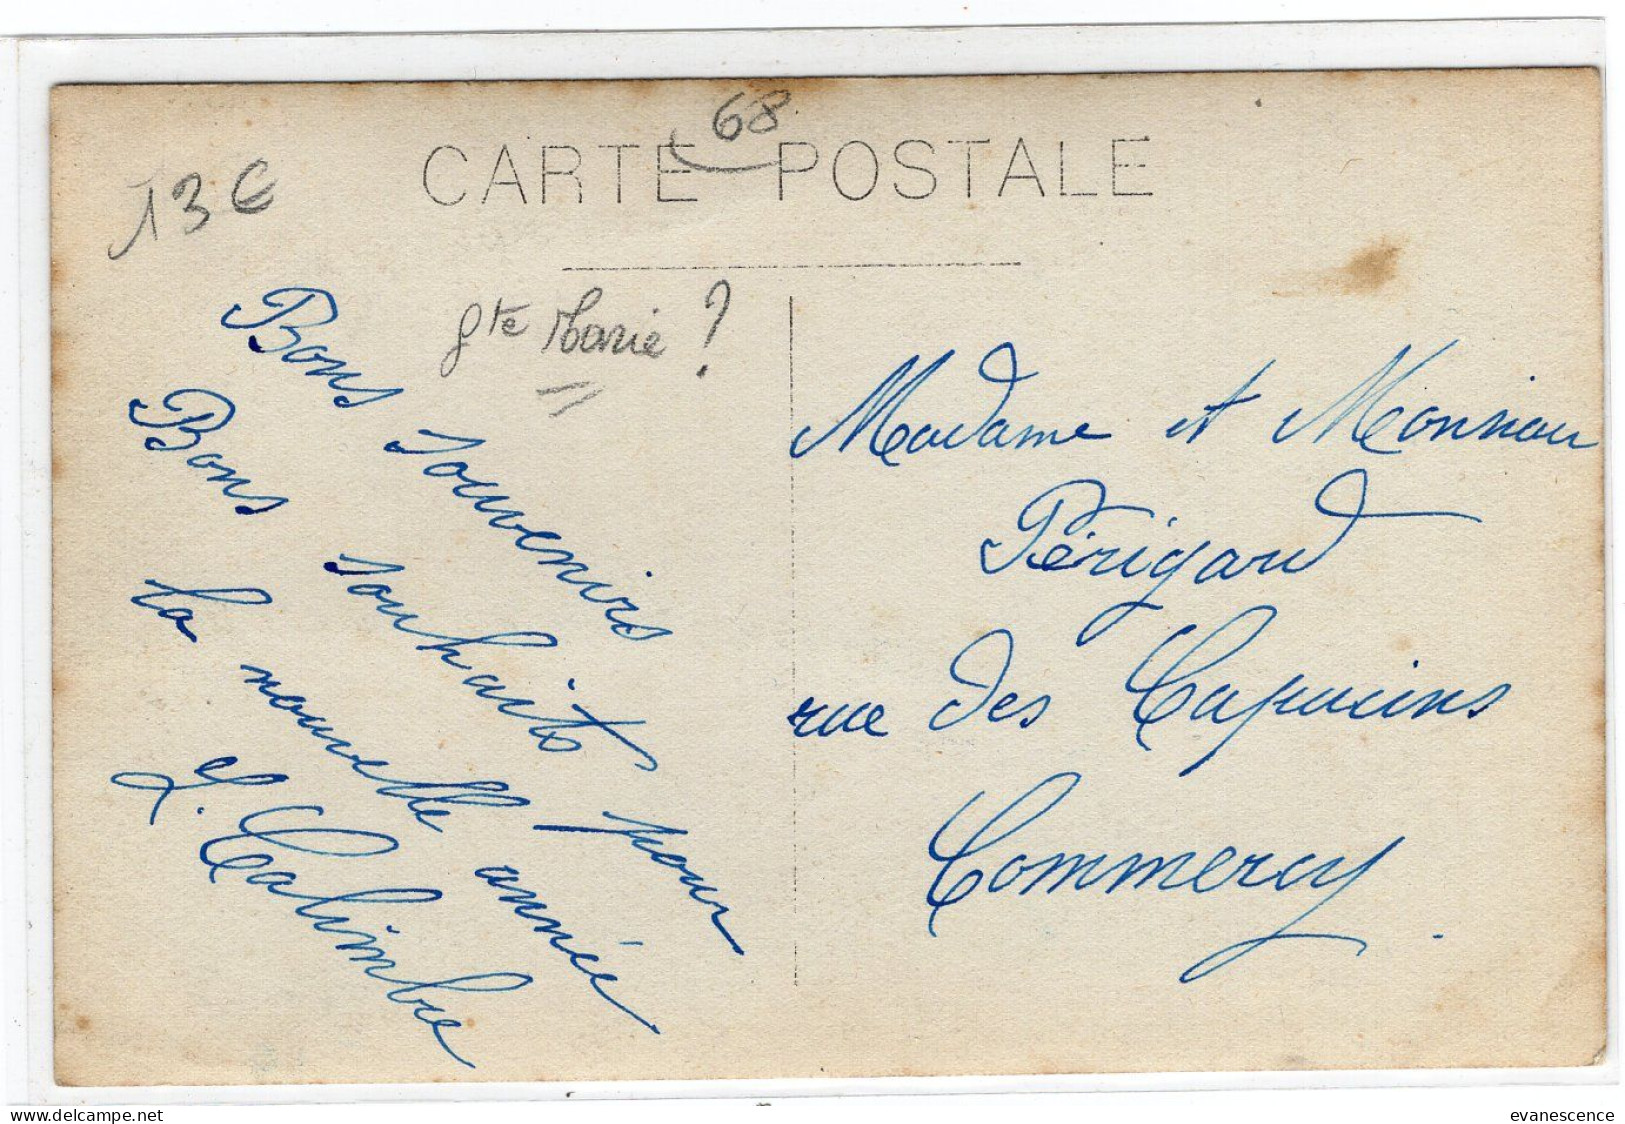 68
CARTE POSTALE
13€
Ste Marie ?
Bons souvenirs
Bons souhaits pour
la nouvelle année
Madame et Monsieur
Périgard
rue des Capucins
Commercy.
www.delcampe.net
evanescence